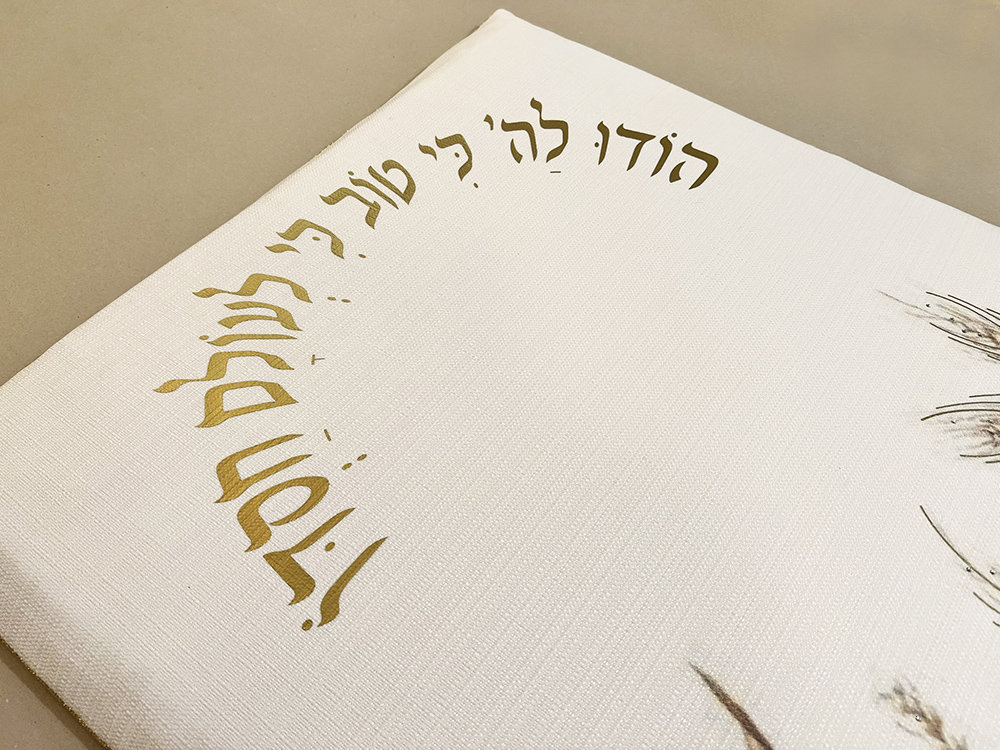 הוֹדוּ לַה' כִּי טוֹב כִּי לְעוֹלָם חַסְדּוֹ